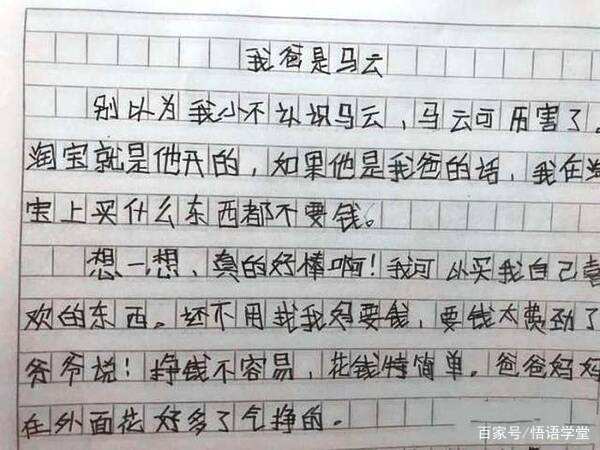 我爸是马云
别以为我小不认识马云,马云可历害了。
淘宝就是他开的,如果他是我爸的话,我在淘
宝上买什么东西都不要钱。
想一想,真的好棒啊!我可以买我自己喜
欢的东西。还不用找我妈要钱,要钱太费劲了
爷爷说!挣钱不容易,花钱特简单。爸爸妈妈
在外面花好多了气挣的。
百家号/悟语学堂